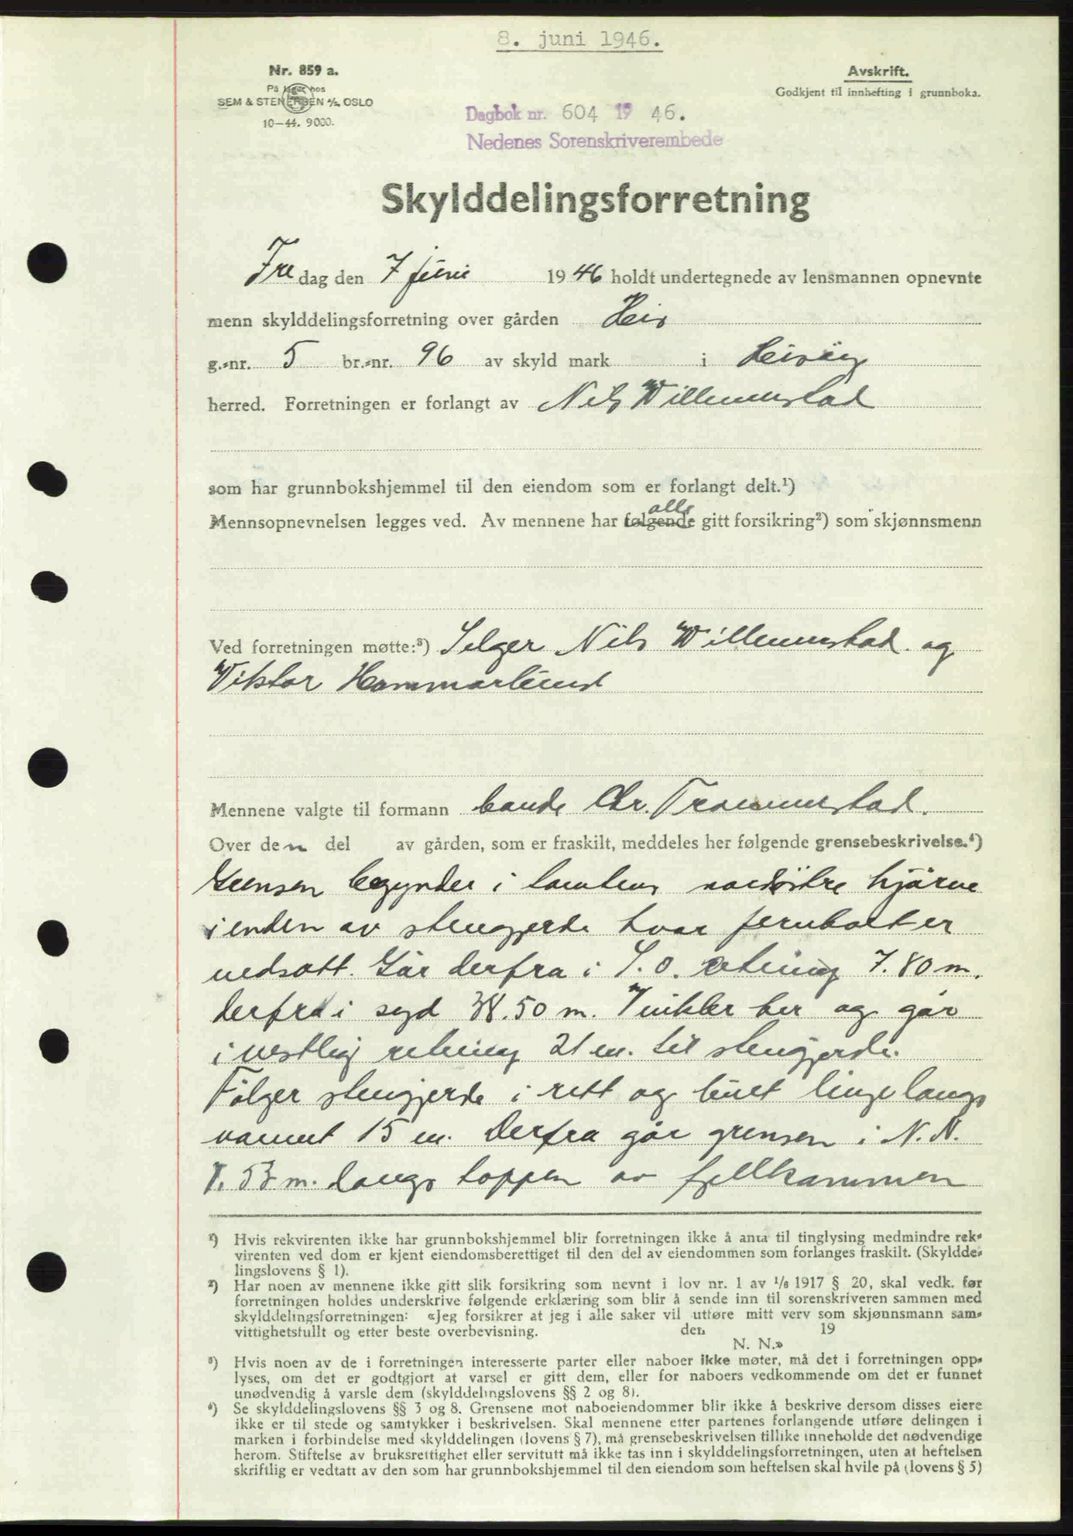 8. juni 1946.
Nr. 859 a.
På lager hos
SEM & STENERSEN A/S, OSLO
10—44. 9000.
Avskrift.
Godkjent til innhefting i grunnboka.
Dagbok nr. 604 19 46.
Nedenes Sorenskriverembede
Skylddelingsforretning
Fre dag den 7 juni 1946 holdt undertegnede av lensmannen opnevnte
menn skylddelingsforretning over gården His
g.-nr. 5 br.-nr. 96 av skyld mark i Hisøy
herred. Forretningen er forlangt av Nils Willumstad
som har grunnbokshjemmel til den eiendom som er forlangt delt.¹)
alle
Mennsopnevnelsen legges ved. Av mennene har følgende gitt forsikring²) som skjønnsmenn
Ved forretningen møtte:³) Selger Nils Willumstad og
Viktor Hammarlund
Mennene valgte til formann Chr. Trommestad.
Over den del av gården, som er fraskilt, meddeles her følgende grensebeskrivelse.⁴)
Grensen begynder i tomtens nordöstre hjörne
i enden av stengjerde hvor jernbolt er
nedsatt. Går derfra i S.O. retning 7.80 m.
derfra i syd 38.50 m. Vinkler her og går
i vestlig retning 21 m. til stengjerde.
Følger stengjerde i rett og buet linje langs
vannet 15 m. Derfra går grensen i N.N.
7.57 m. langs toppen av fjellkammen
¹) Hvis rekvirenten ikke har grunnbokshjemmel blir forretningen ikke å anta til tinglysing medmindre rek-
virenten ved dom er kjent eiendomsberettiget til den del av eiendommen som forlanges fraskilt. (Skyldde-
lingslovens § 1).
²) Har noen av mennene ikke gitt slik forsikring som nevnt i lov nr. 1 av 1/6 1917 § 20, skal vedk. før
forretningen holdes underskrive følgende erklæring som blir å sende inn til sorenskriveren sammen med
skylddelingsforretningen: «Jeg forsikrer at jeg i alle saker vil utføre mitt verv som skjønnsmann sam-
vittighetsfullt og etter beste overbevisning. den 19
N. N.»
³) Hvis noen av de i forretningen interesserte parter eller naboer ikke møter, må det i forretningen opp-
lyses, om det er godtgjort at varsel er gitt dem, eller for naboers vedkommende om det er funnet
unødvendig å varsle dem (skylddelingslovens §§ 2 og 8).
⁴) Se skylddelingslovens §§ 3 og 8. Grensene mot naboeiendommer blir ikke å beskrive dersom disses eiere
ikke er til stede og samtykker i beskrivelsen. Skal mennene etter partenes forlangende utføre delingen i
marken i forbindelse med skylddelingen (lovens § 7), må grensebeskrivelsen tillike inneholde det nødvendige
herom. Stiftelse av bruksrettighet eller servitutt må ikke tas inn i skylddelingsforretningen, uten at heftelsen
skriftlig er vedtatt av den som har grunnbokshjemmel til den eiendom som heftelsen skal hvile på (lovens § 5)